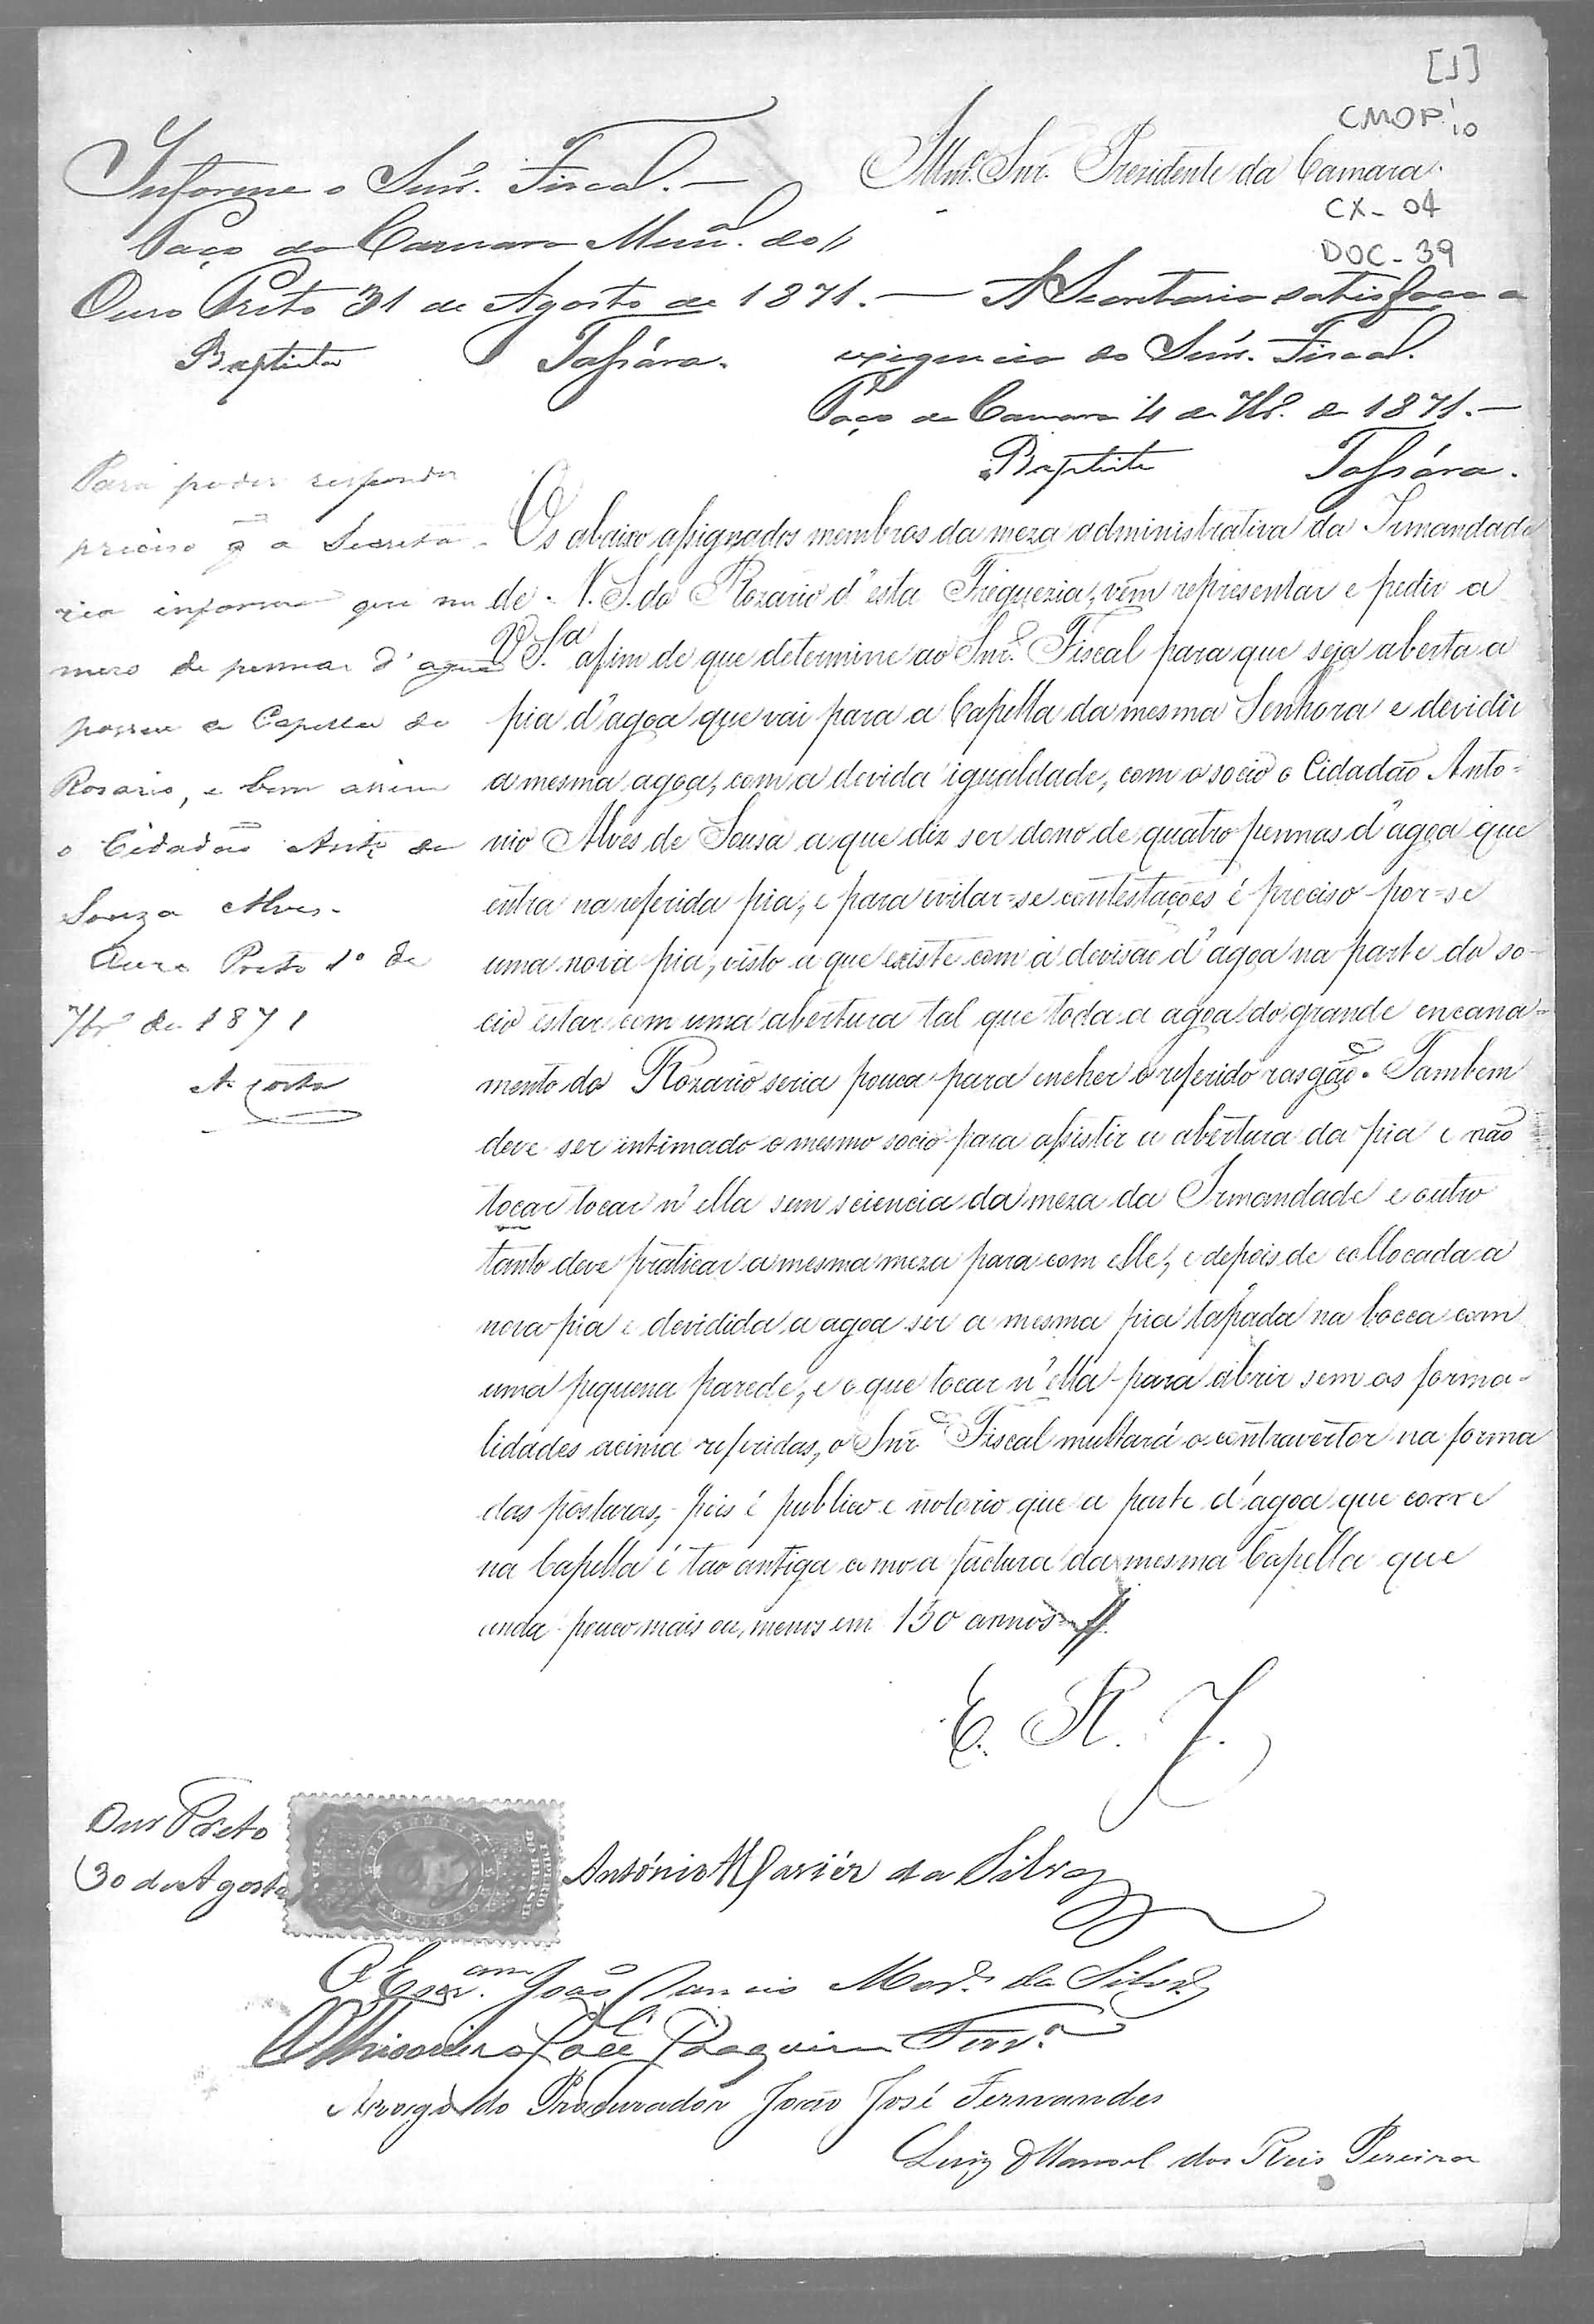 [1]
CMOP 1/10
Illmo. Snr. Presidente da Camara.
CX - 04
DOC - 39
Informe o Snr. Fiscal. —
Paço da Camara Munal. do
Ouro Preto 31 de Agosto de 1871. —
Baptista Tassára.
A Secretaria satisfaça a
exigencia do Snr. Fiscal.
Paço da Camara 4 de 7br.o de 1871. —
Baptista Tassára.
Para poder responder
preciso q̃ a Secreta-
ria informe que nu
mero de pennas d'agua
possue a Capella do
Rosario, e bem assim
o Cidadão Anto. de
Souza Alves.
Ouro Preto 1º de
7br.o de 1871
A. Costa
Os abaixo assignados membros da meza administrativa da Irmandade
de N. S. do Rozario d'esta Freguezia, vem representar e pedir a
V. S.a afim de que determine ao Snr. Fiscal para que seja aberta a
pia d'agoa que vai para a Capella da mesma Senhora e devidir
a mesma agoa, com a devida igualdade, com o socio o Cidadão Anto=
nio Alves de Sousa a que diz ser dono de quatro pennas d'agoa que
entra na referida pia, e para evitar-se contestações é preciso por-se
uma nova pia, visto a que existe com a devisão d'agoa na parte do so-
cio estar com uma abertura tal que toda a agoa do grande encana-
mento do Rozario seria pouca para encher o referido rasgão. Tambem
deve ser intimado o mesmo socio para assistir a abertura da pia e não
tocar tocar n'ella sem sciencia da meza da Irmandade e outro
tanto deve praticar a mesma meza para com elle, e depois de collocada a
nova pia e devidida a agoa ser a mesma pia tapada na bocca com
uma pequena parede, e o que tocar n'ella para abrir sem as forma-
lidades acima referidas, o Snr. Fiscal multará o contraventor na forma
das posturas, pois é publico e notorio que a parte d'agoa que corre
na Capella é tão antiga como a factura da mesma Capella que
anda pouco mais ou menos em 150 annos
E. R. J.
Ouro Preto
30 de Agosto
António Xaviér da Silva
O Escr.am João Mor.a da Silva
O Thisoueiro José Joaquim Ferr.a
Arogo do Procurador João José Fernandes
Luiz Manoel dos Reis Pereira